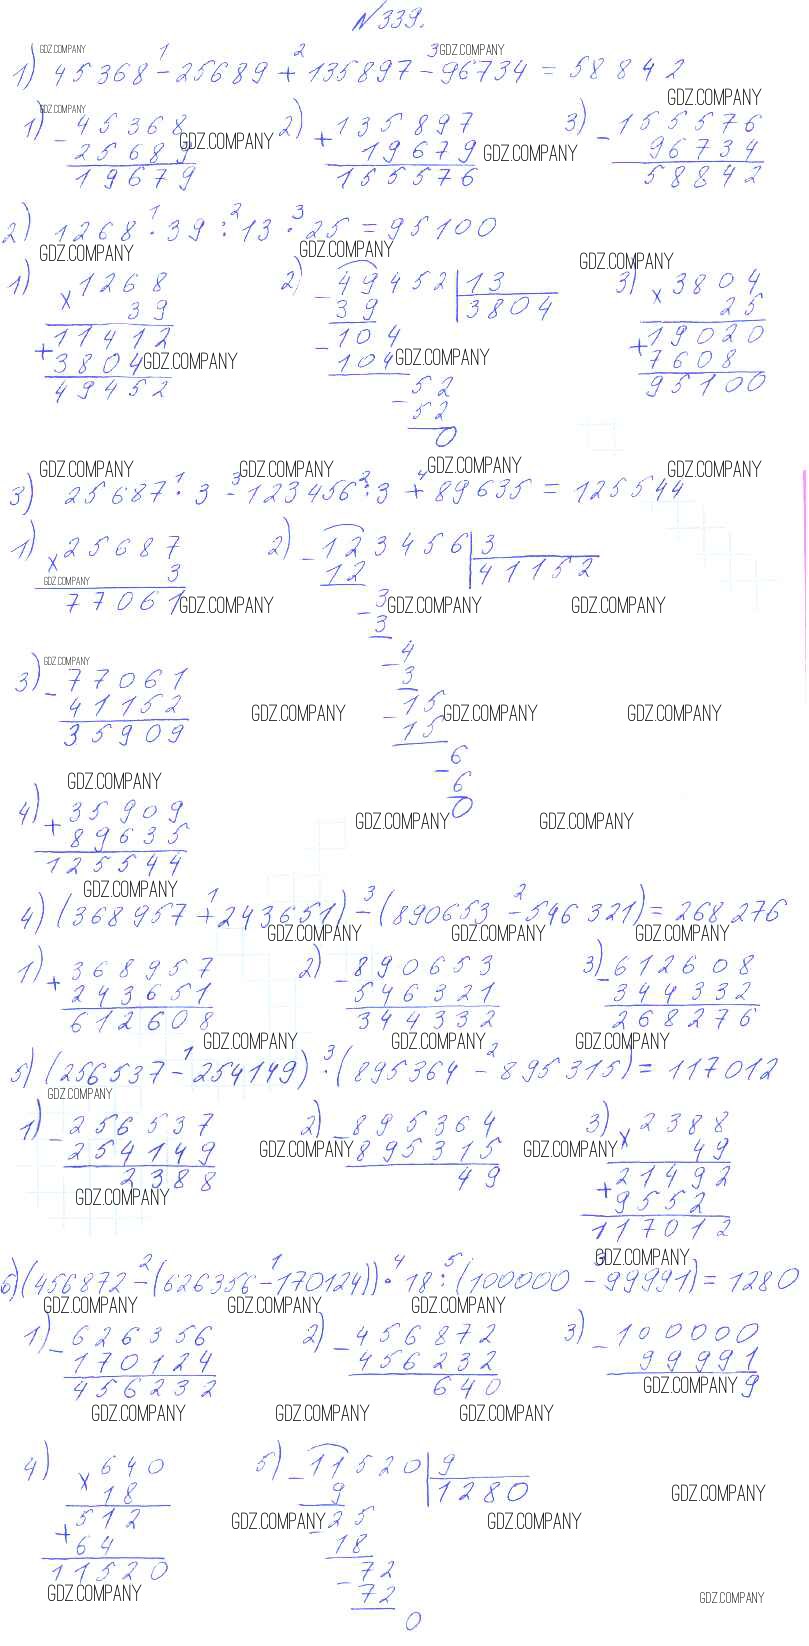 N 339.
1) 45368 - 25689 + 135897 - 96734 = 58842
1) - 45368
25689
19679
2) + 135897
19679
155576
3) - 155576
96734
58842
2) 1268 · 39 : 13 · 25 = 95100
1) × 1268
39
11412
+ 3804
49452
2) - 49452 | 13
39 3804
- 104
104
- 52
52
0
3) × 3804
25
+ 19020
7608
95100
3) 25687 · 3 - 123456 : 3 + 89635 = 125544
1) × 25687
3
77061
2) - 123456 | 3
12 41152
- 3
3
- 4
3
- 15
15
- 6
6
0
3) - 77061
41152
35909
4) + 35909
89635
125544
4) (368957 + 243651) - (890653 - 546321) = 268276
1) + 368957
243651
612608
2) - 890653
546321
344332
3) - 612608
344332
268276
5) (256537 - 254149) · (895364 - 895315) = 117012
1) - 256537
254149
2388
2) - 895364
895315
49
3) × 2388
49
+ 21492
9552
117012
6) (456872 - (626356 - 170124)) · 18 : (100000 - 99991) = 1280
1) - 626356
170124
456232
2) - 456872
456232
640
3) - 100000
99991
9
4) × 640
18
+ 512
64
11520
5) - 11520 | 9
9 1280
- 25
18
- 72
72
0
GDZ.COMPANY